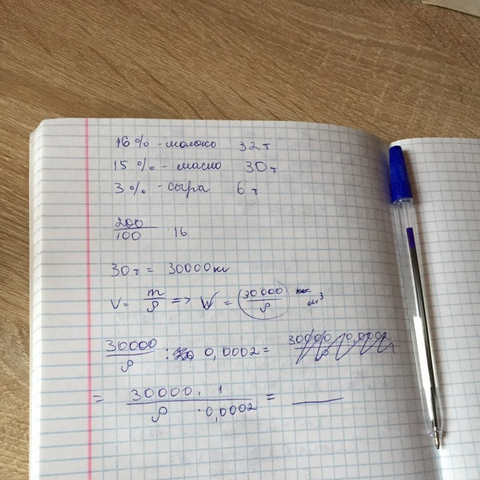 16% - молоко 32т
15% - масло 30т
3% - сыра 6т
200/100 · 16
30т = 30000кг
V = m/ρ => V = (30000/ρ) м³
30000/ρ : 0,0002 =
= 30000 · 1 / ρ · 0,0002 = ___